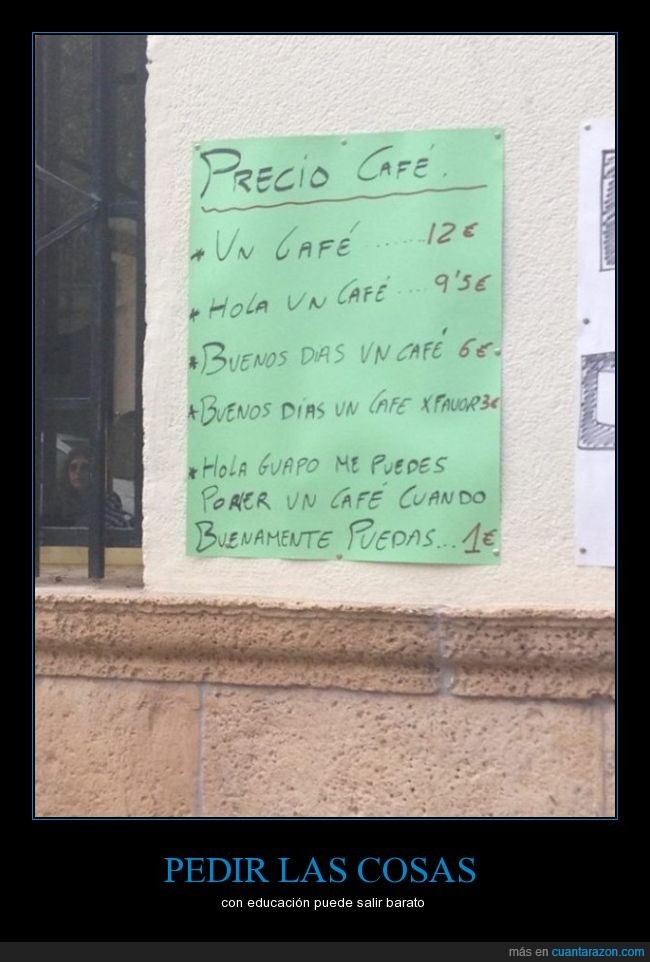 PRECIO CAFÉ.
* UN CAFÉ ....... 12 €
* HOLA UN CAFÉ .... 9'5 €
* BUENOS DIAS UN CAFÉ 6 €.
* BUENOS DÍAS UN CAFE X FAVOR 3 €
* HOLA GUAPO ME PUEDES
PONER UN CAFÉ CUANDO
BUENAMENTE PUEDAS... 1 €
PEDIR LAS COSAS
con educación puede salir barato
más en cuantarazon.com